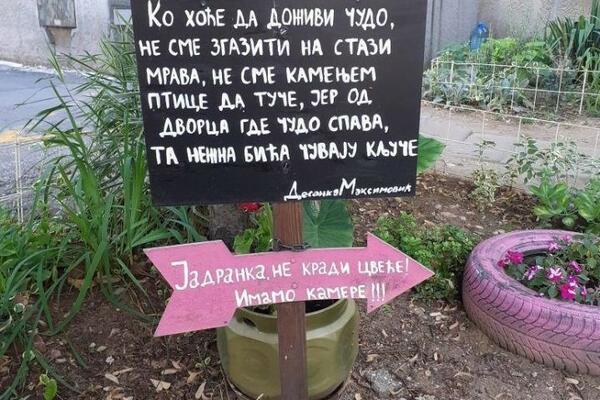 Ко хоће да доживи чудо,
не сме згазити на стази
мрава, не сме камењем
птице да туче, јер од
дворца где чудо спава,
та нежна бића чувају кључе
Десанка Максимовић
Јадранка, не кради цвеће!
Имамо камере!!!